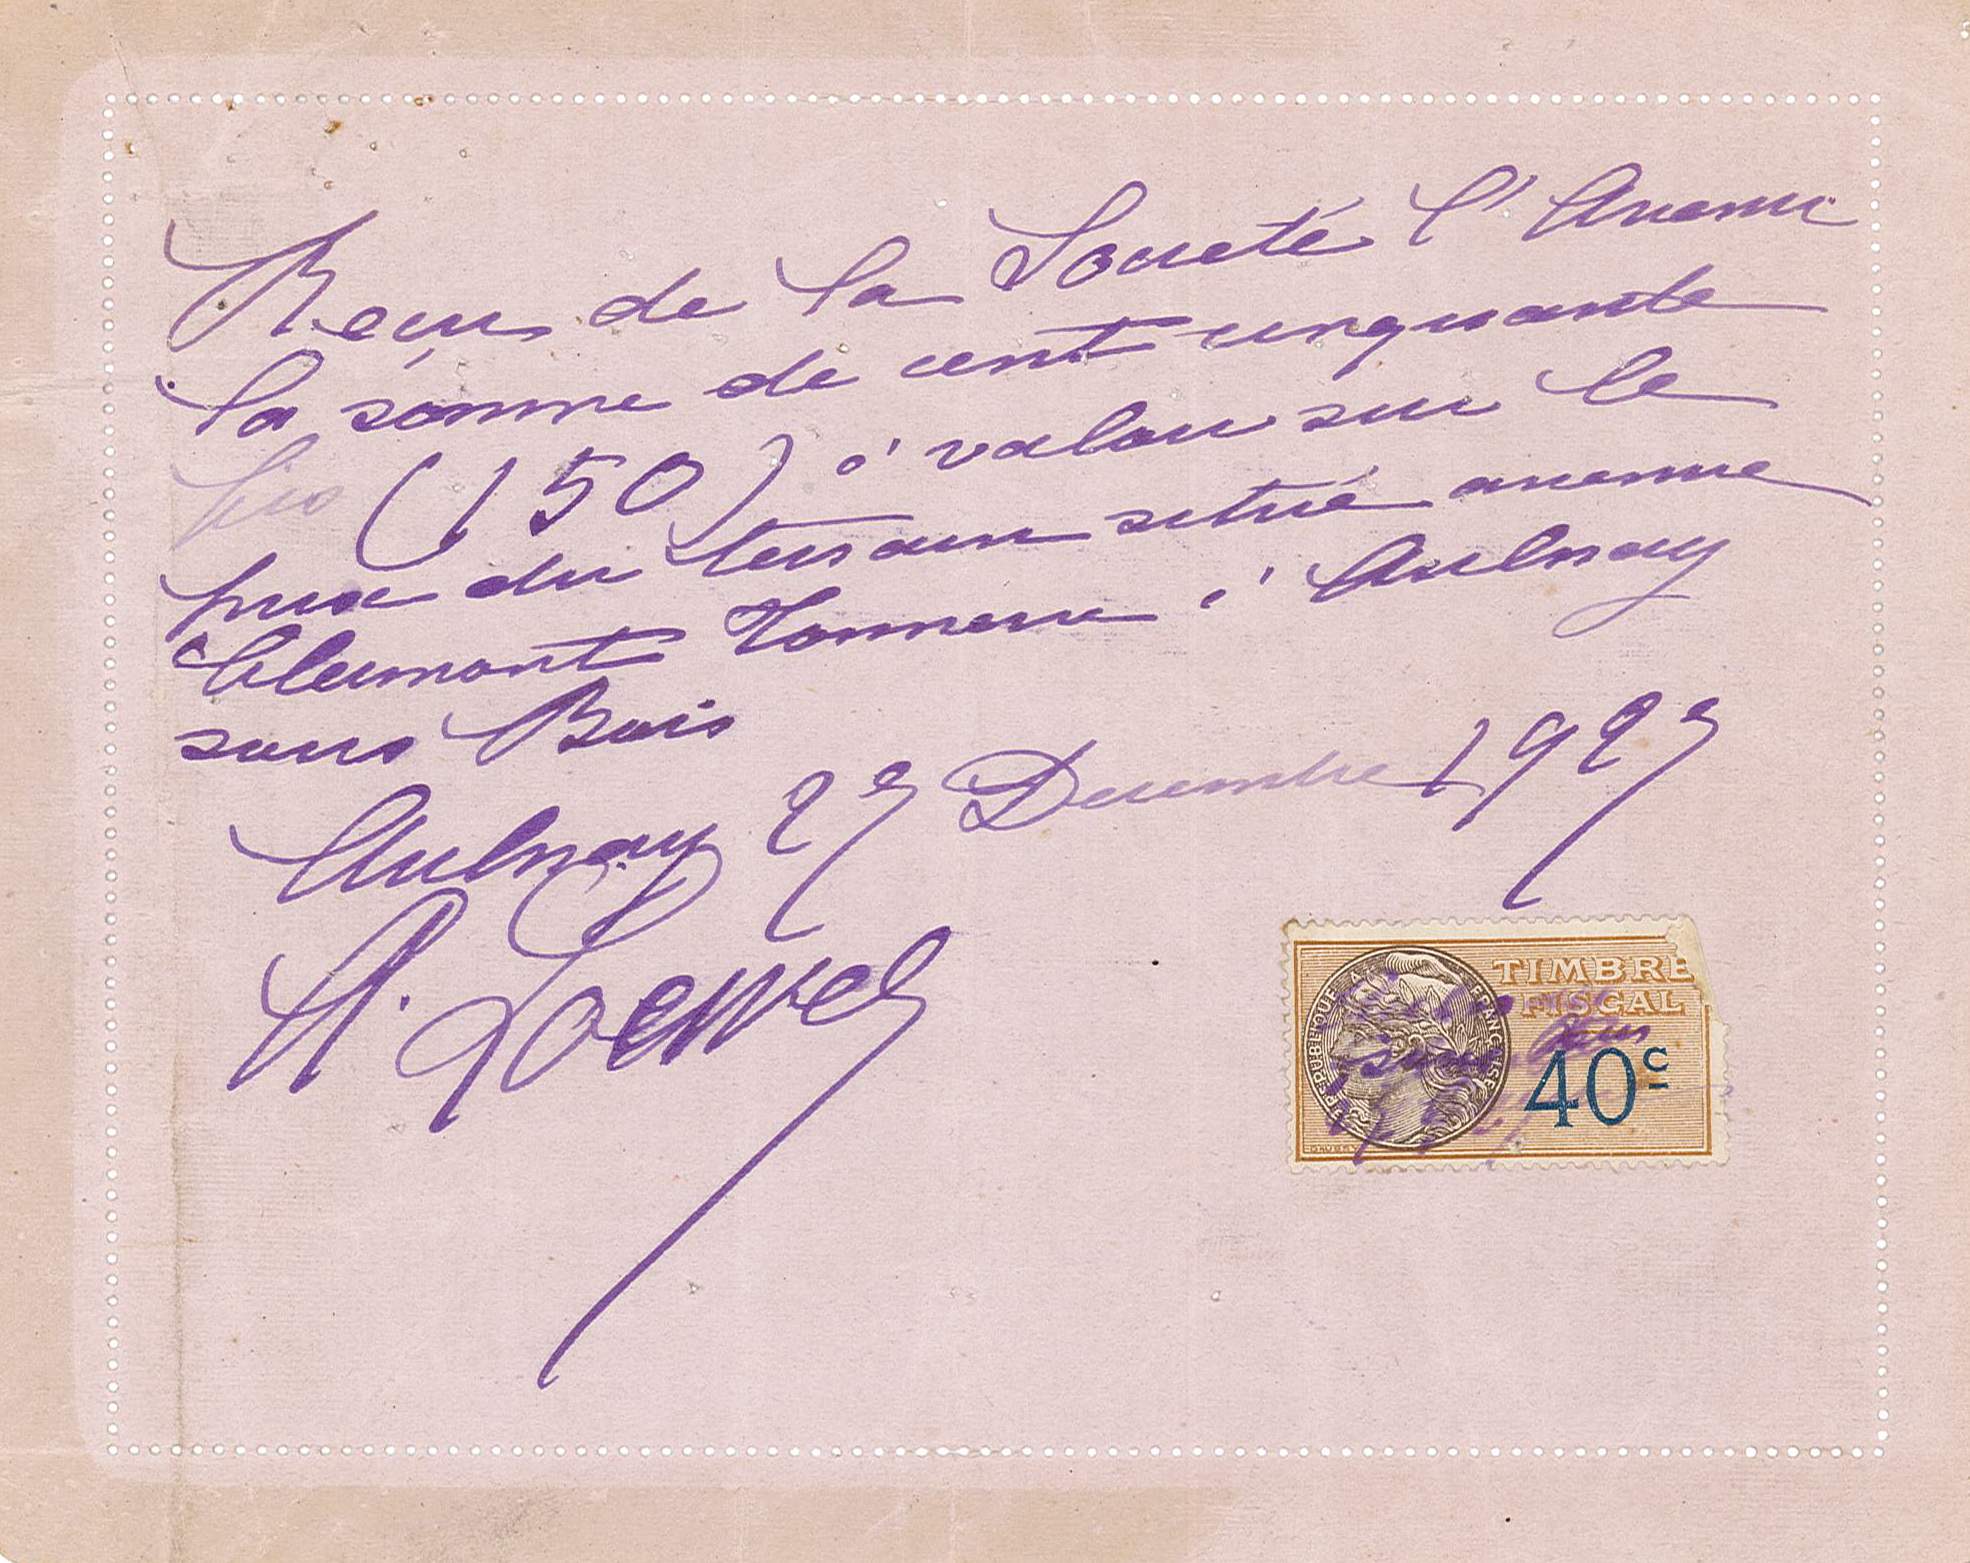 Reçu de la Société l'Avenir
la somme de cent cinquante
(150) à valoir sur le
prix du terrain situé avenue
Clermont Tonnerre à Aulnay
sous Bois
Aulnay 29 Decembre 1929
A. Loewel
RÉPUBLIQUE FRANÇAISE
TIMBRE
FISCAL
40c